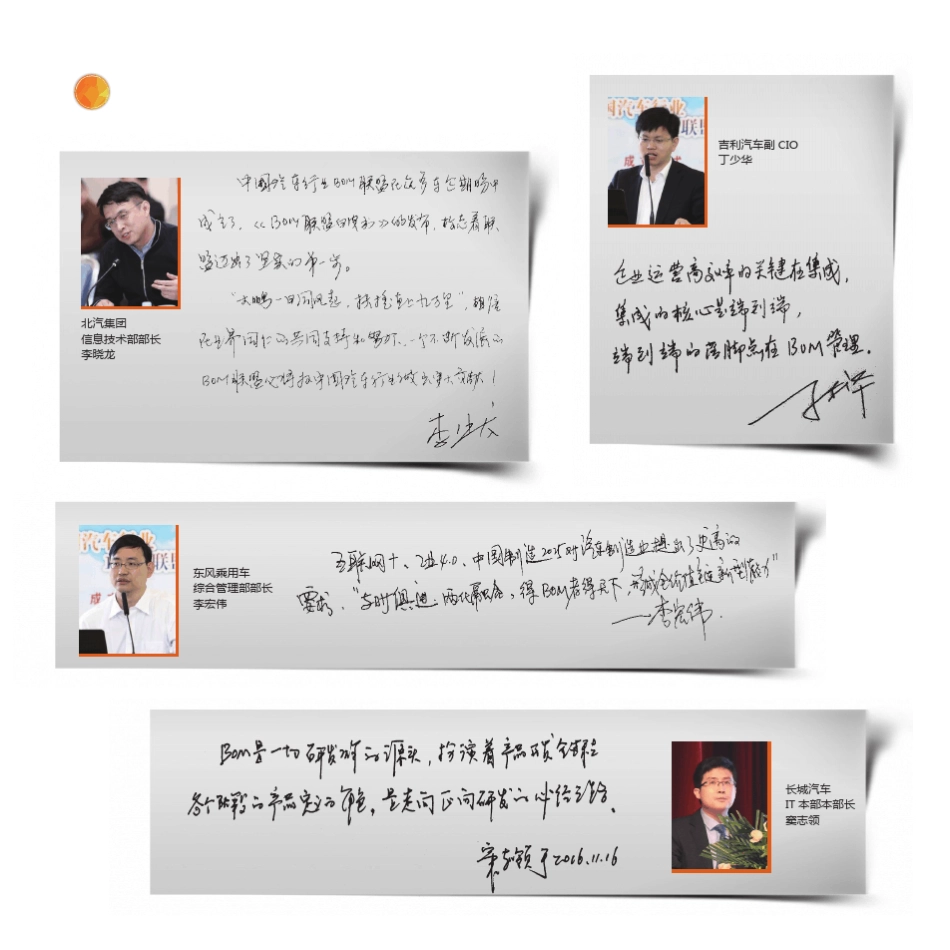 中国汽车行业BOM联盟在众多车企期盼中
成立了,《BOM联盟四
》的发布,标志着联
盟迈出了坚实的第一步。
"大鹏一日同风起,扶摇直上九万里",相信
在业界同仁的共同支持和努力下,一个不断发展的
BOM联盟必将为中国汽车行业做出更大贡献!
北汽集团
信息技术部部长
李晓龙
吉利汽车副 CIO
丁少华
企业运营高效率的关键在集成,
集成的核心是端到端,
端到端的落脚点在BOM管理。
东风乘用车
综合管理部部长
李宏伟
互联网+、工业4.0、中国制造2025对汽车制造业提出了更高的
要求,"与时俱进、两化融合,得BOM者得天下,
新型能力"
——李宏伟
BOM是一切研发体系的源头,扮演着产品研发全过程
各个阶段的产品定义的角色,是走向正向研发的必经之路。
窦志领于2016.11.16
长城汽车
IT 本部本部长
窦志领